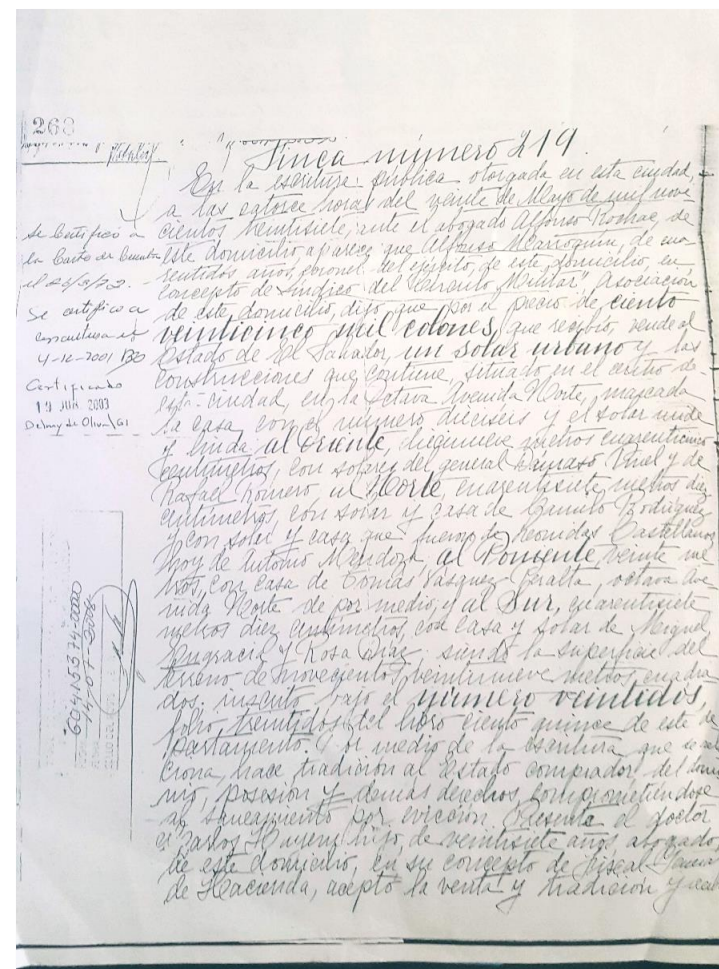 268
Finca número 219.
En la escritura pública otorgada en esta ciudad,
a las catorce horas del veinte de Mayo de mil nove-
cientos veintisiete, ante el abogado Alfonso Rochac, de
este domicilio, aparece que Alfonso Marroquín, de
sentidos años, coronel del ejército, de este domicilio, en
concepto de Síndico del "Círculo Militar", Asociación
de este domicilio, dijo que por el precio de ciento
veinticinco mil colones, que recibió, vende al
Estado de El Salvador, un solar urbano y las
construcciones que contiene, situado en el centro de
esta ciudad, en la Octava Avenida Norte, marcada
la casa con el número dieciseis y el solar mide
y linda al Oriente, diecinueve metros cuarenticinco
centímetros, con solares del general Dámaso y de
Rafael Romero al Norte, cuarentisiete metros diez
centímetros, con solar y casa de Camilo Rodríguez
y con solar y casa que fueron de Leonidas Castellanos
hoy de Antonio Mendoza, al Poniente veinte me-
tros, con casa de Tomás Vásquez Peralta, octava Ave-
nida Norte de por medio, y al Sur, cuarentisiete
metros diez centímetros, con casa y solar de Miguel
Engracia y Rosa Díaz; siendo la superficie del
terreno de novecientos veintinueve metros cuadra-
dos; inscrito bajo el número veintidos,
folio treintidos del libro ciento quince de este de-
partamento. Por medio de la escritura que se rela-
ciona, hace tradición al Estado comprador del domi-
nio, posesión y demás derechos, comprometiéndose
al saneamiento por evicción. Presente el doctor
Carlos hijo, de veintisiete años, abogado,
de este domicilio, en su concepto de Fiscal
de Hacienda, aceptó la venta y tradición y
Se certificó a
la Corte de Cuentas
el
Se certifico a
4-10-2001
Certificado
19 JUN 2003
Delmy de Oliva/GI
60415374-0000
14-07-2008